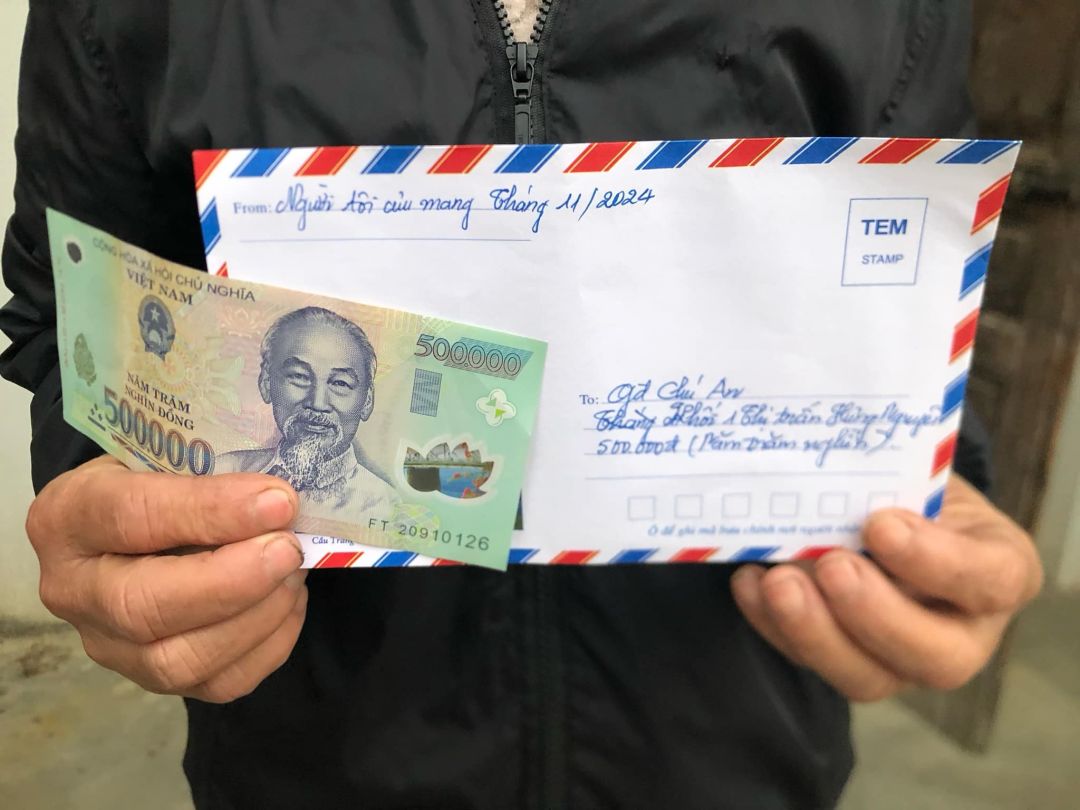 From: Người tôi cưu mang Tháng 11/2024
TEM
STAMP
CỘNG HÒA XÃ HỘI CHỦ NGHĨA
VIỆT NAM
NĂM TRĂM
NGHÌN ĐỒNG
500000
500.000
FT 20910126
To: gđ Chú An
Khối 1 Thị trấn Hưng Nguyên
500.000đ (Năm trăm nghìn)
Ô để ghi mã bưu chính nơi người nhận
Cầu Tràng